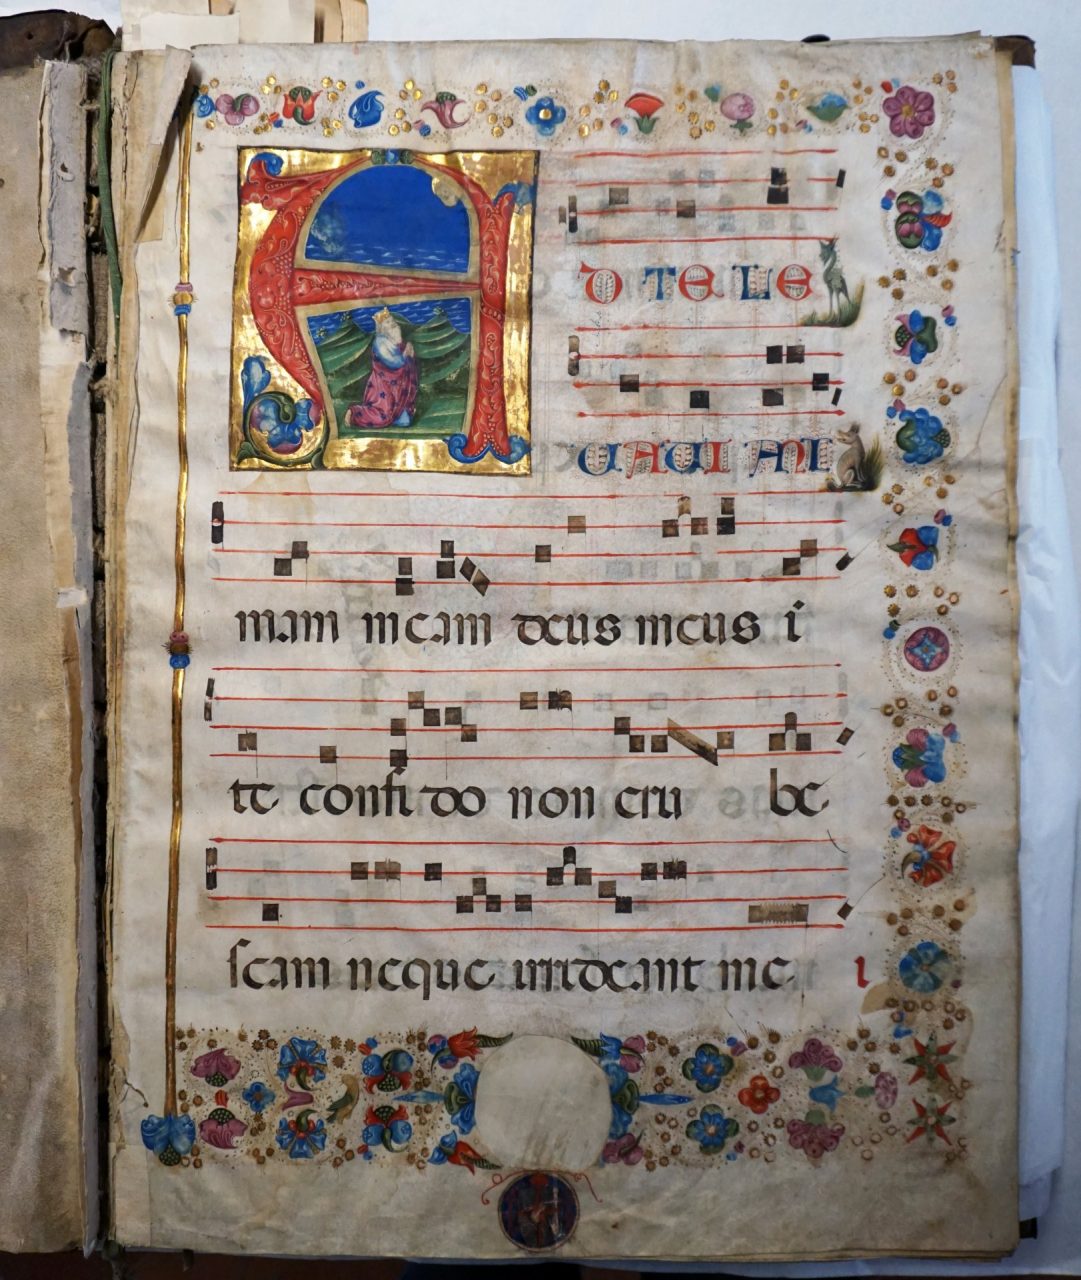 A D TE LE
UAUI ANI
mam meam deus meus i
te confido non eru be
scam neque irrideant me. i